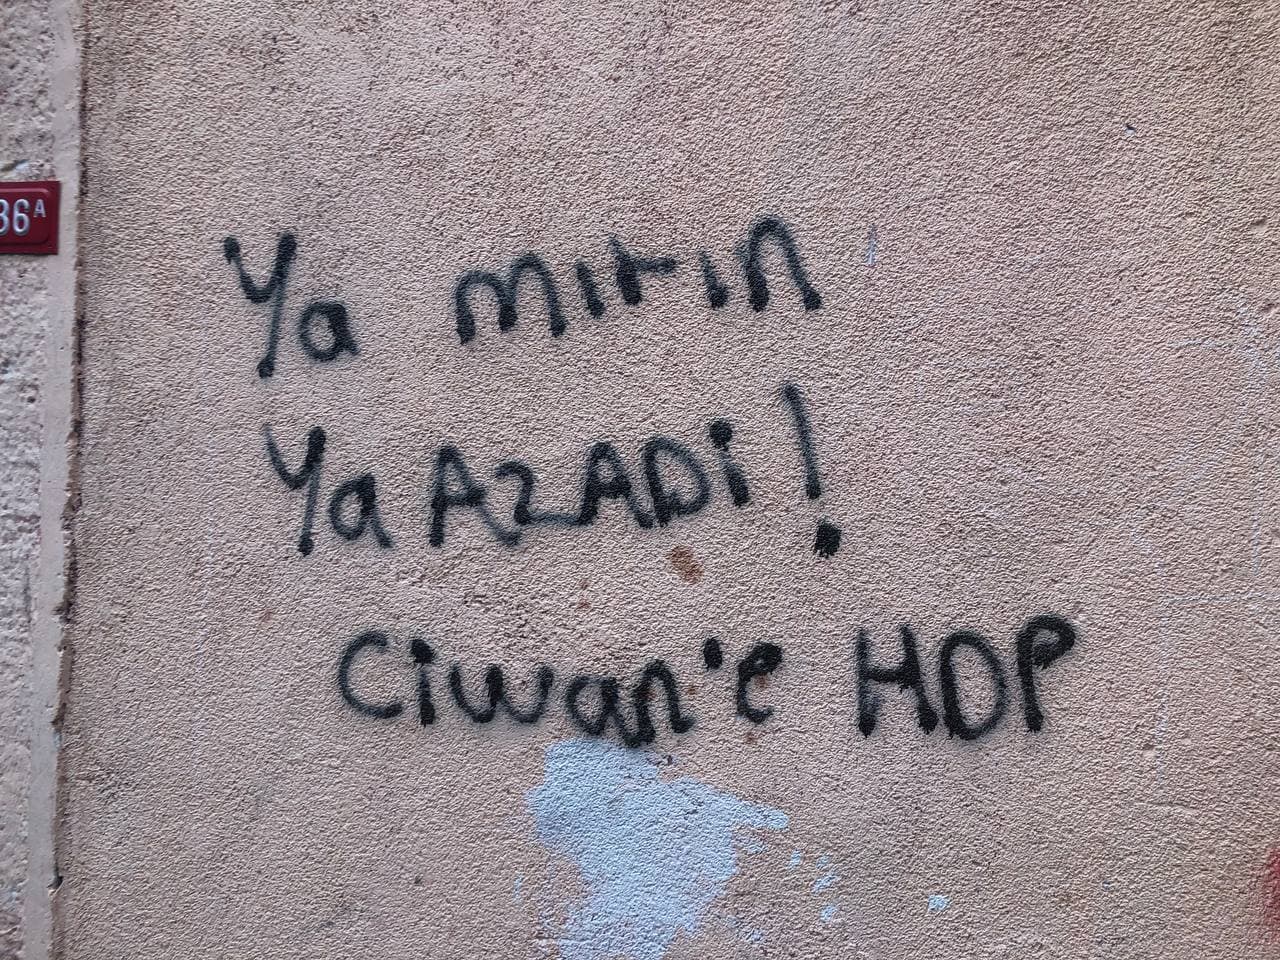 36A
Ya mırın
Ya AZADi!
Ciwan'e HDP